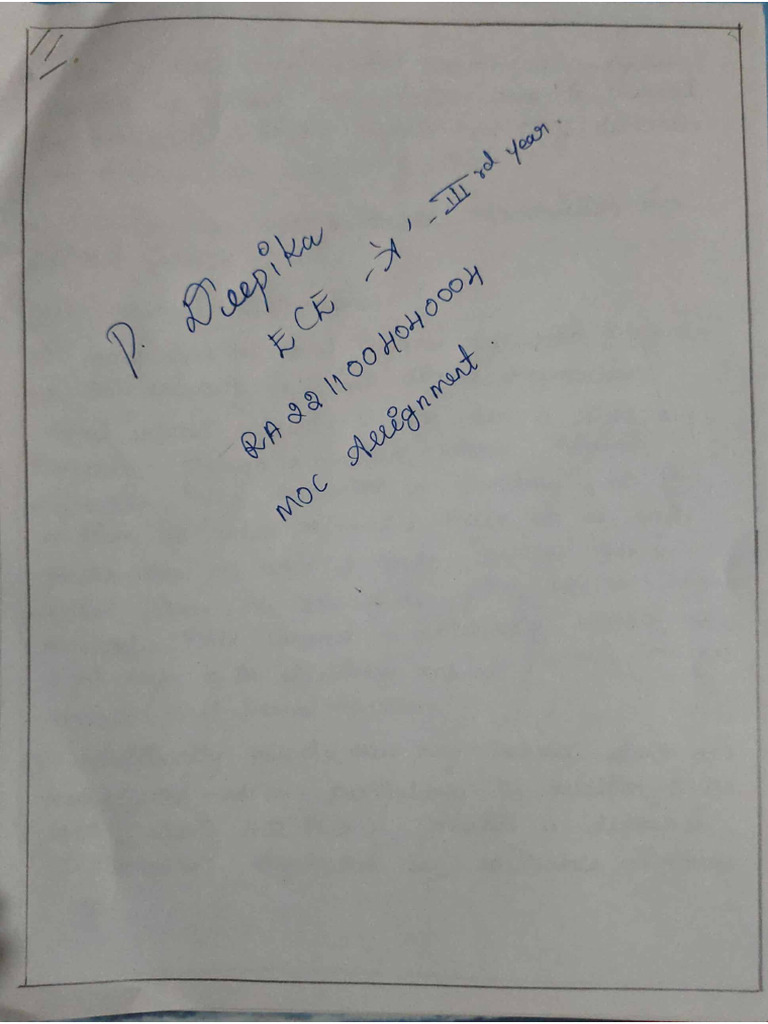 P. Deepika
ECE - 'A' - IIIrd year.
RA2211004040004
MOC Assignment.